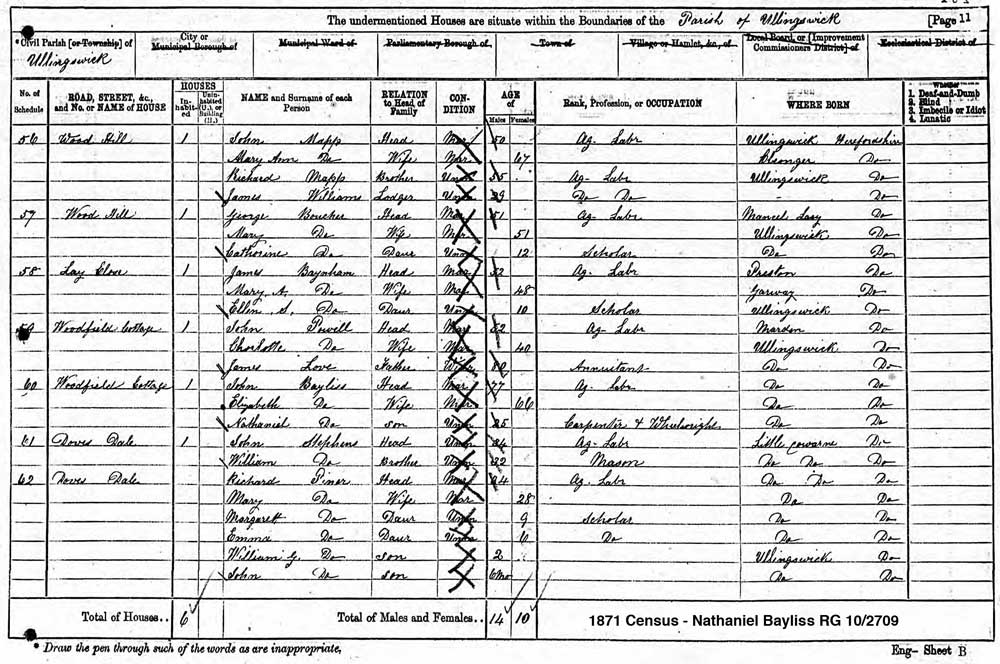 The undermentioned Houses are situate within the Boundaries of the Parish of Ullingswick [Page 11
*Civil Parish [or Township] of City or Municipal Borough of Municipal Ward of Parliamentary Borough of Town of Village or Hamlet, &c., of Local Board, or [Improvement Commissioners District] of Ecclesiastical District of
Ullingswick
No. of Schedule ROAD, STREET, &c., and No. or NAME of HOUSE HOUSES Inhabited Uninhabited (U.), or Building (B.) NAME and Surname of each Person RELATION to Head of Family CONDITION AGE of Males Females Rank, Profession, or OCCUPATION WHERE BORN Whether 1. Deaf-and-Dumb 2. Blind 3. Imbecile or Idiot 4. Lunatic
56 Wood Hill 1 John Mapp Head Mar 50 Ag. Labr Ullingswick Herefordshire
Mary Ann Do Wife Mar 67 Do
Richard Mapp Brother Unm 55 Ag. Labr Ullingswick Do
James Williams Lodger Unm 39 Do Do - Do
57 Wood Hill 1 George Boucher Head Mar 51 Ag. Labr Do
Mary Do Wife Mar 51 Ullingswick Do
Catherine Do Daur Unm 12 Scholar Do Do
58 Lay Close 1 James Baynham Head Mar 52 Ag. Labr Preston Do
Mary A. Do Wife Mar 48 Garway Do
Ellen S. Do Daur Unm 10 Scholar Ullingswick Do
59 Woodfield Cottage 1 John Powell Head Mar Ag. Labr Marden Do
Charlotte Do Wife Mar 40 Ullingswick Do
James Love Father Annuitant Do Do
60 Woodfield Cottage 1 John Bayliss Head Mar 77 Ag. Labr Do Do
Elizabeth Do Wife Mar 66 Do Do
Nathaniel Do son Unm 25 Carpenter & Wheelwright Do Do
61 Doves Dale 1 John Stephens Head Unm Ag. Labr Little Cowarne Do
William Do Brother Unm Mason Do Do Do
62 Doves Dale Richard Piner Head Mar Ag. Labr Do Do Do
Mary Do Wife Mar 28 Do Do
Margarett Do Daur Unm 9 Scholar Do Do
Emma Do Daur Unm 6 Do Do Do
William G. Do son 2 Ullingswick Do
John Do son 6mo Do Do
Total of Houses.. 6 Total of Males and Females.. 14 10 1871 Census - Nathaniel Bayliss RG 10/2709
* Draw the pen through such of the words as are inappropriate. Eng- Sheet B